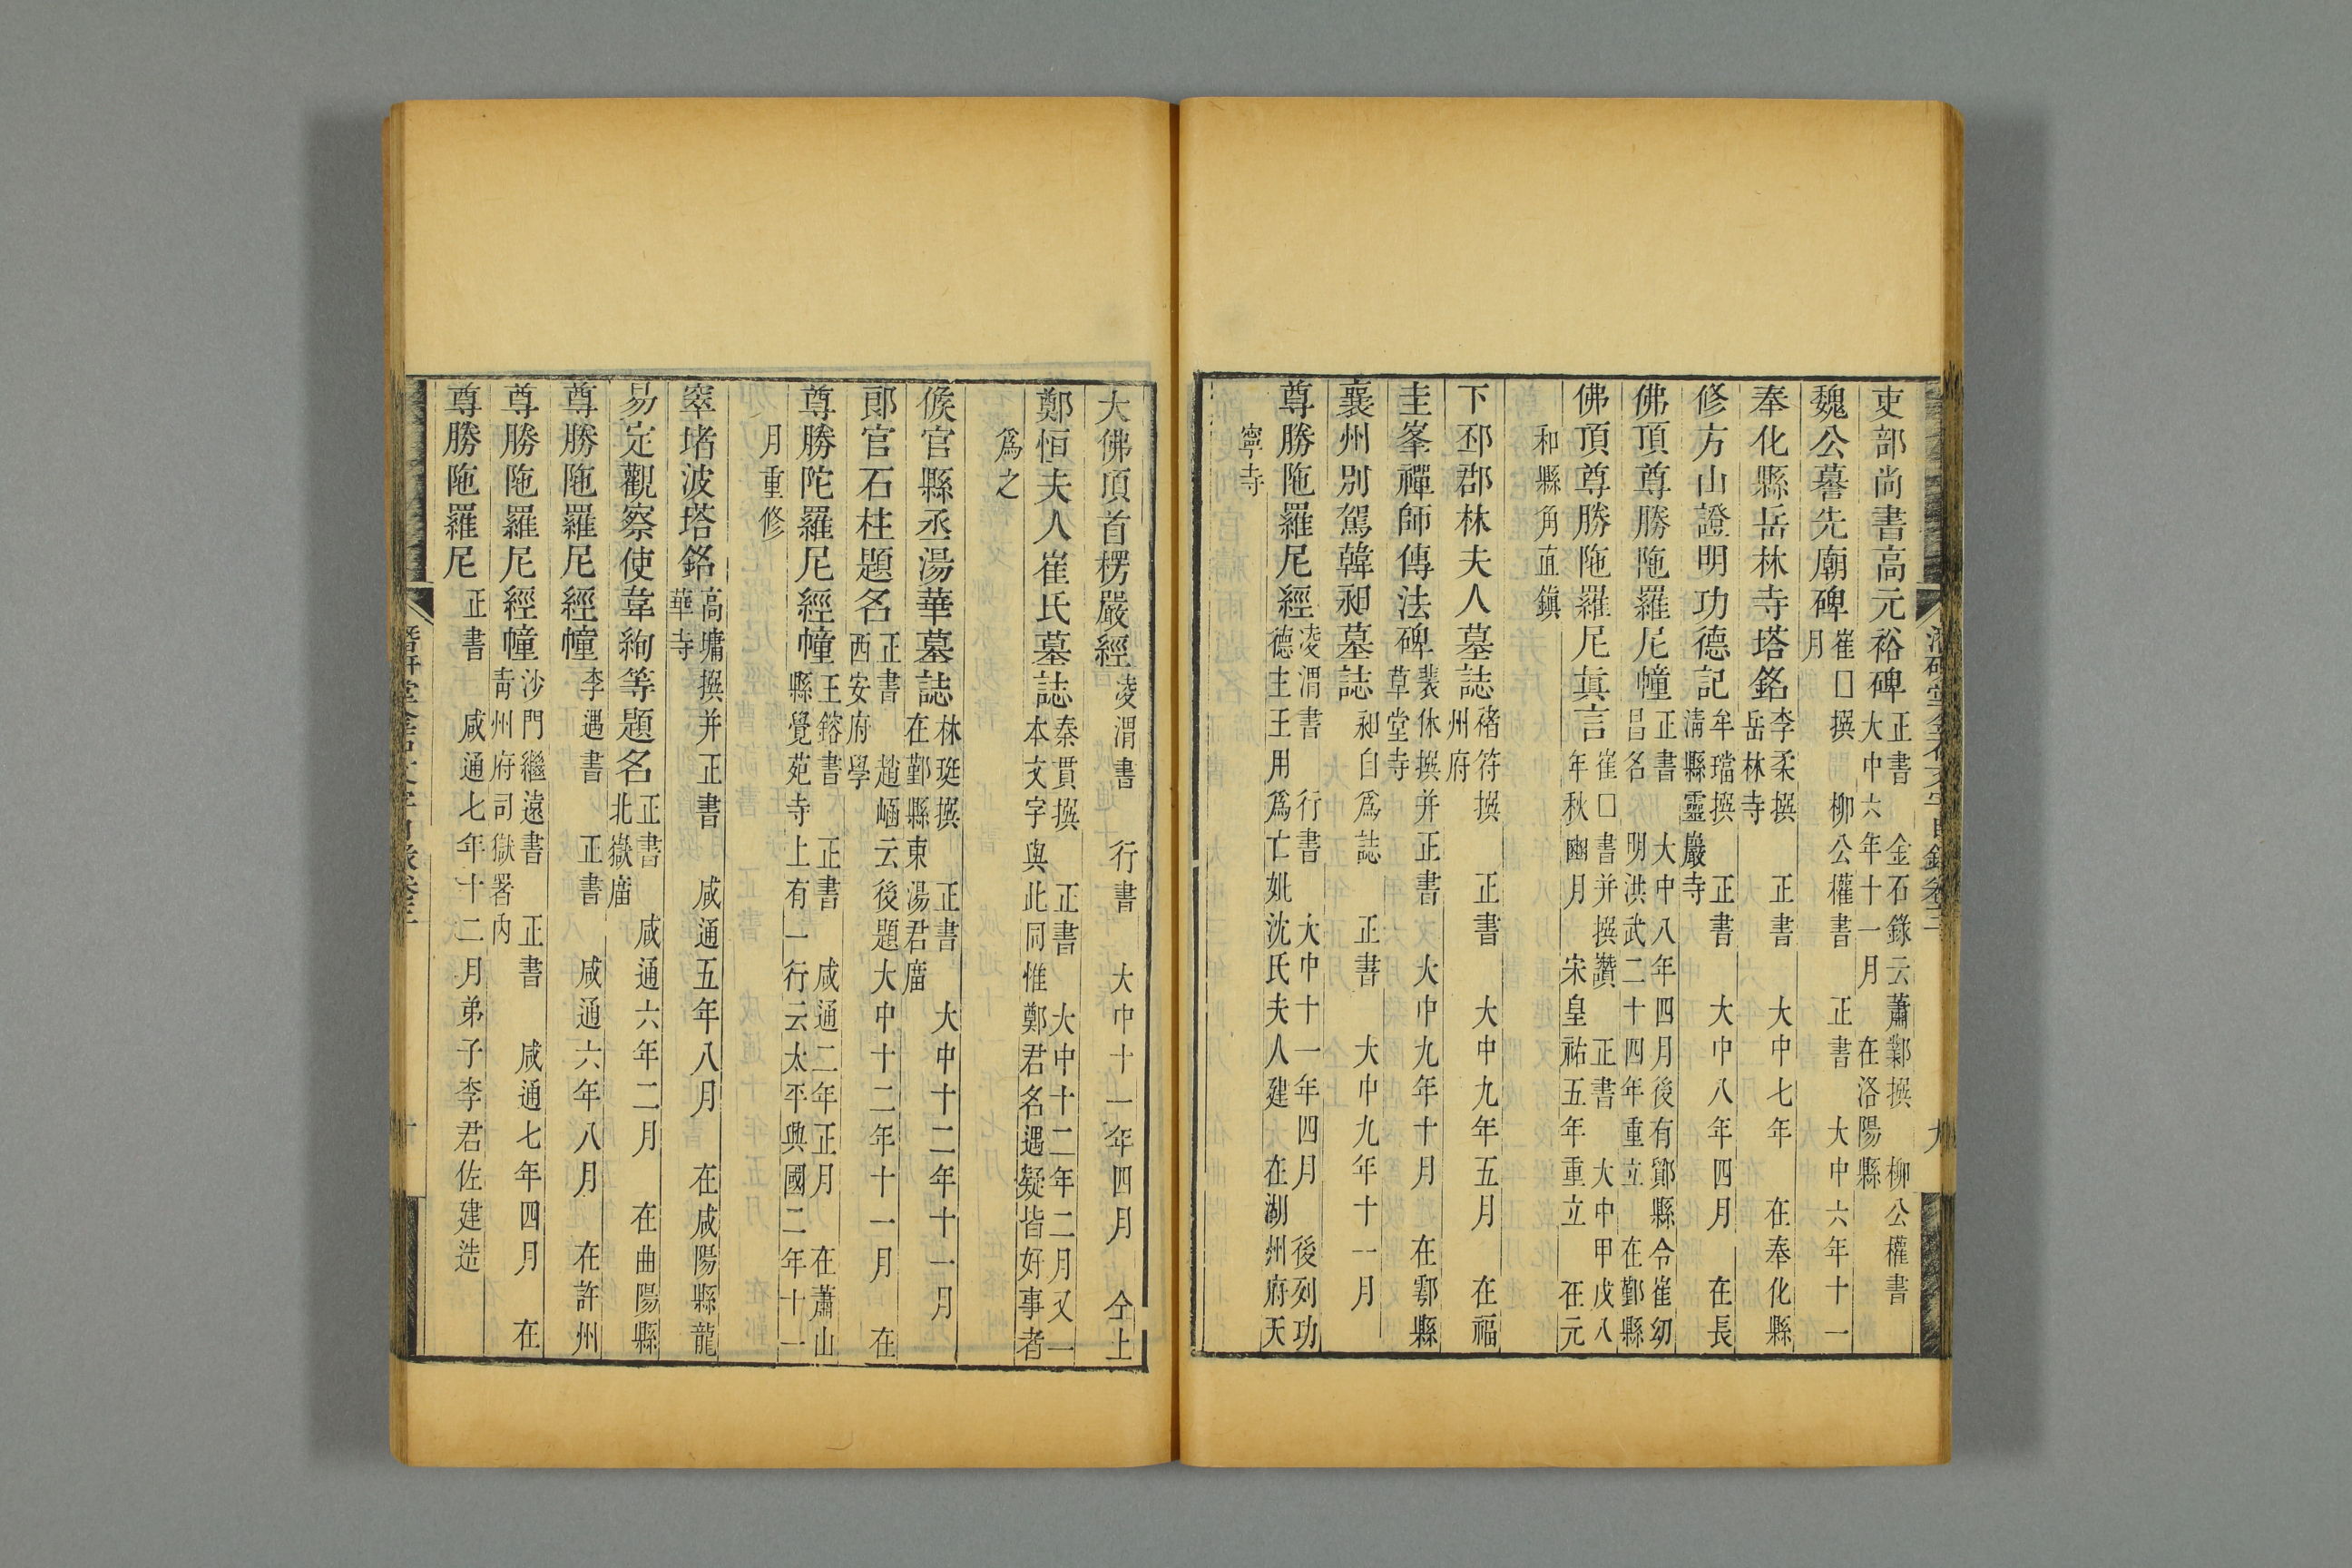 吏部尚書高元裕碑 正書 金石錄云蕭鄴撰 柳公權書
大中六年十一月 在洛陽縣
魏公䜅先廟碑 崔□撰 柳公權書 正書 大中六年十一
月
奉化縣岳林寺塔銘 李柔撰 正書 大中七年 在奉化縣
岳林寺
修方山證明功德記 牟璫撰 正書 大中八年四月 在長
淸縣靈巖寺
佛頂尊勝陁羅尼幢 正書 大中八年四月後有鄮縣令崔幼
昌名 明洪武二十四年重立 在鄞縣
佛頂尊勝陁羅尼眞言 崔□書并撰讚 正書 大中甲戌八
年秋豳月 宋皇祐五年重立 在元
和縣角直鎭
下邳郡林夫人墓誌 褚符撰 正書 大中九年五月 在福
州府
圭峯禪師傳法碑 裴休撰并正書 大中九年十月 在鄠縣
草堂寺
襄州別駕韓昶墓誌 昶自爲誌 正書 大中九年十一月
尊勝陁羅尼經 凌渭書 行書 大中十一年四月 後列功
德主王用爲亡妣沈氏夫人建 在湖州府天
寧寺
大佛頂首楞嚴經 凌渭書 行書 大中十一年四月 仝上
鄭恒夫人崔氏墓誌 秦貫撰 正書 大中十二年二月又一
本文字與此同惟鄭君名遇疑皆好事者
爲之
候官縣丞湯華墓誌 林珽撰 正書 大中十二年十一月
在鄞縣東湯君廟
郎官石柱題名 正書 趙崡云後題大中十二年十一月 在
西安府學
尊勝陀羅尼經幢 王鎔書 正書 咸通二年正月 在蕭山
縣覺苑寺上有一行云太平興國二年十一
月重修
窣堵波塔銘 高墉撰并正書 咸通五年八月 在咸陽縣龍
華寺
易定觀察使韋絢等題名 正書 咸通六年二月 在曲陽縣
北嶽廟
尊勝陁羅尼經幢 李遇書 正書 咸通六年八月 在許州
尊勝陁羅尼經幢 沙門繼遠書 正書 咸通七年四月 在
靑州府司獄署內
尊勝陁羅尼 正書 咸通七年十二月弟子李君佐建造